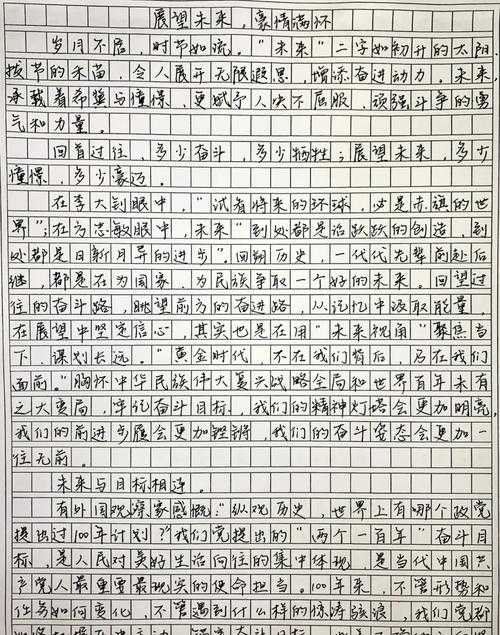 展望未来，豪情满怀
岁月不居，时节如流。“未来”二字如初升的太阳，
拔节的禾苗，令人展开无限遐思，增添奋进动力。未来，
承载着希望与憧憬，更赋予人决不屈服，顽强斗争的勇
气和力量。
回首过往，多少奋斗，多少牺牲；展望未来，多少
憧憬，多少豪迈。
在李大钊眼中，“试看将来的环球，必是赤旗的世
界”；在方志敏眼中，未来“到处都是活跃跃的创造，到
处都是日新月异的进步”。回朔历史，一代代先辈前赴后
继，都是在为国家，为民族争取一个好的未来。回望过
往的奋斗路，眺望前方的奋进路，从记忆中汲取能量，
在展望中坚定信心，其实也是在用“未来视角”聚焦当
下，谋划长远。“黄金时代，不在我们背后，乃在我们
面前。”胸怀中华民族伟大复兴战略全局和世界百年未有
之大变局，牢记奋斗目标，我们的精神灯塔会更加明亮，
我们的前进步履会更加铿锵，我们的奋斗姿态会更加一
往无前。
未来与目标相连。
有外国观察家感慨：“纵观历史，世界上有哪个政党
提出过100年计划？”我们党提出的“两个一百年”奋斗目
标，是人民对美好生活向往的集中体现，是当代中国共
产党人最重要最现实的使命担当。100年来，不管形势和
任务如何变化，不管遇到什么样的惊涛骇浪，我们党都